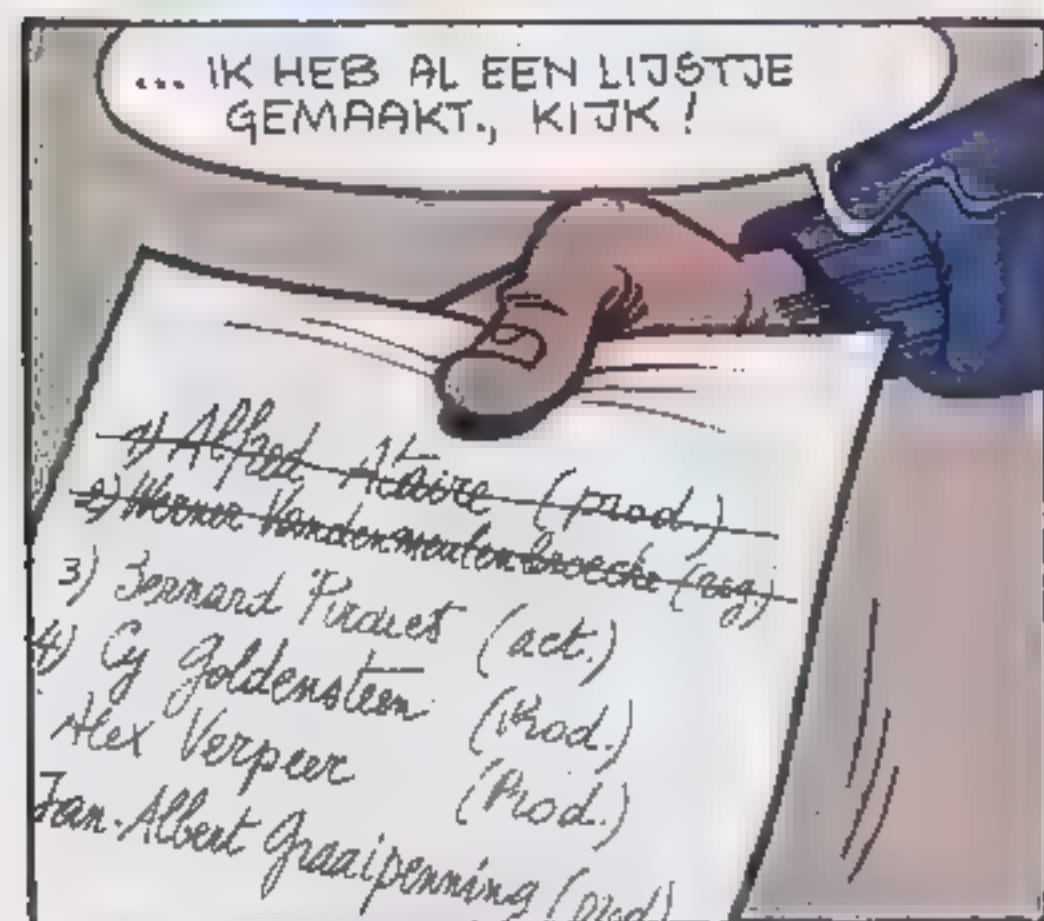 ... IK HEB AL EEN LIJSTJE
GEMAAKT., KIJK!
1) Alfred Ataire (prod.)
2) Werner Vandenmeulenbroecke (reg.)
3) Bernard Piraues (act.)
4) Cy Goldensteen (Prod.)
Alex Verpeer (Prod.)
Jan-Albert Graaipenning (prod)